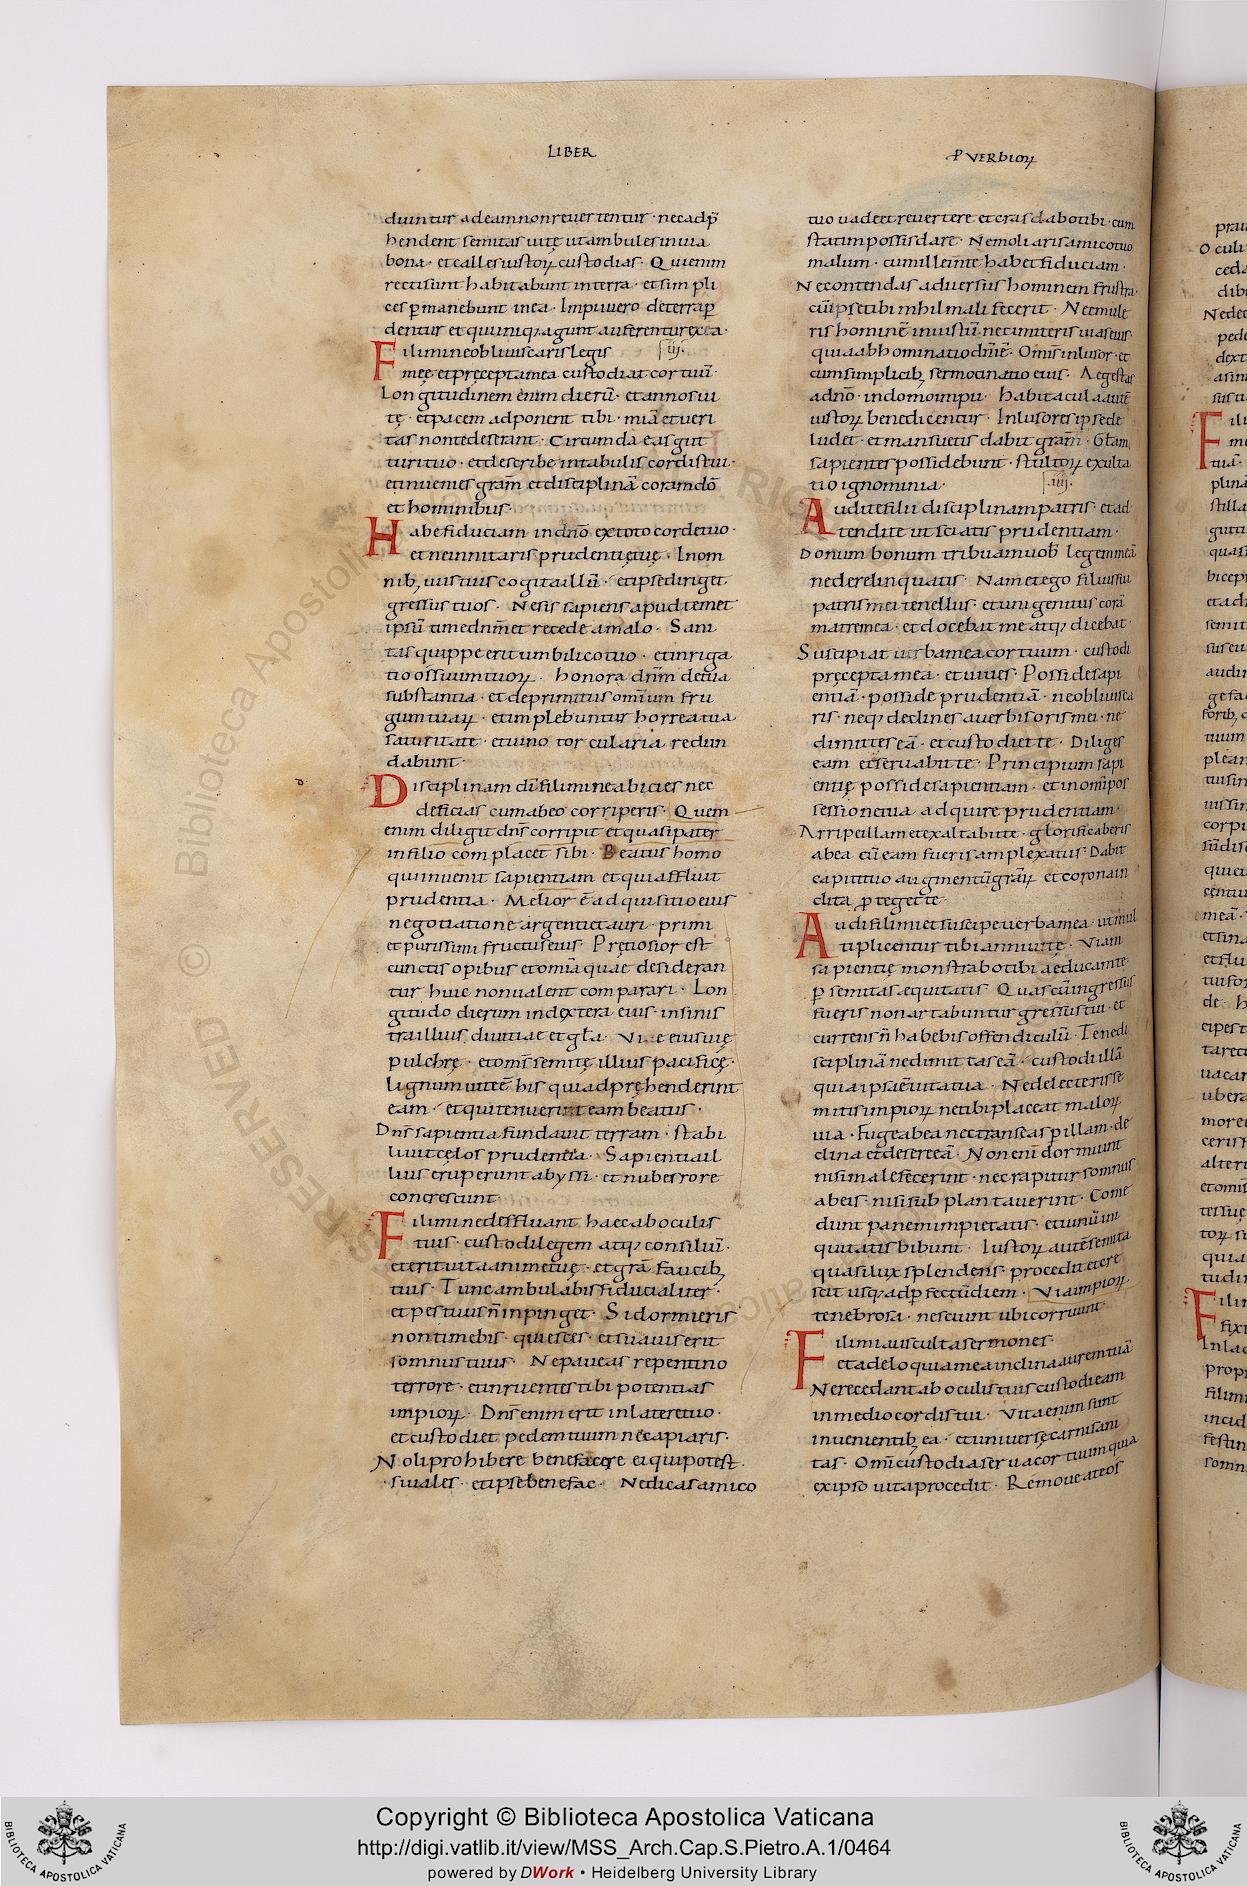 LIBER
duintur ad eam non revertentur · nec adp̄
hendent semitas vitę ut ambules in via
bona · et calles iustoꝝ custodias · Qui enim
recti sunt habitabunt in terra · et sim pli
ces ꝑmanebunt in ea · Impii vero de terra ꝑ
dentur et qui iniq; agunt auferentur ex ea ·
Fili mi ne obliviscaris legis ·iii·
meę et pręcepta mea custodiat cor tuū ·
Longitudinem enim dierū · et annos vi
tę · et pacem adponent tibi · mīa et veri
tas non te deserant · Circumda eas gut
turi tuo · et describe in tabulis cordis tui ·
et invenies gr̄am et disciplinā coram dō
et hominibus ·
Habe fiduciam in dn̄o ex toto corde tuo ·
et ne innitaris prudentię tuę · In om
nib; viis tuis cogita illū · et ipse diriget
gressus tuos · Ne sis sapiens apud temet
ipsū time dn̄m et recede a malo · Sani
tas quippe erit umbilico tuo · et inriga
tio ossium tuoꝝ · honora dn̄m de tua
substantia · et de primitiis omīum fru
gum tuaꝝ · et implebuntur horrea tua
saturitate · et vino torcularia redun
dabunt ·
Disciplinam dn̄i fili mi ne abicies nec
deficias cum ab eo corriperis · Quem
enim diligit dn̄s corripit et quasi pater
in filio complacet sibi · Beatus homo
qui invenit sapientiam et qui affluit
prudentia · Melior ē adquisitio eius
negotiatione argenti et auri · primi
et purissimi fructus eius · Pretiosior est
cunctis opibus et omīa quae desideran
tur huic non valent comparari · Lon
gitudo dierum in dextera eius · in sinis
tra illius divitiae et gl̄a · Vi e eius vię
pulchrę · et oms̄ semitę illius pacificę ·
lignum vite ē his qui adprehenderint
eam · et qui tenuerint eam beatus ·
Dn̄s sapientia fundavit terram · stabi
livit cęlos prudentia · Sapientia il
lius eruperunt abyssi · et nubes rore
concrescunt ·
Fili mi ne deffluant haec ab oculis
tuis · custodi legem atq; consiliū ·
et erit vita animę tuę · et gr̄a faucib;
tuis · Tunc ambulabis fiducialiter ·
et pes tuus n̄ inpinget · Si dormieris
non timebis · quiesces · et suavis erit
somnus tuus · Ne paveas repentino
terrore · et inruentes tibi potentias
impioꝝ · Dn̄s enim erit in latere tuo ·
et custodiet pedem tuum ne capiaris ·
Noli prohibere benefacere ei qui potest ·
si vales · et ipse benefac · Ne dicas amico
ꝓVERBIOꝝ
tuo vade et revertere et cras dabo tibi · cum
statim possis dare · Ne moliaris amico tuo
malum · cum ille in te habet fiduciam ·
Ne contendas adversus hominem frustra ·
cū ipse tibi nihil mali fecerit · Ne emule
ris hominē iniustū nec imiteris vias eius ·
quia abhominatio dn̄i ē · Omis̄ inlusor · et
cum simplicib; sermocinatio eius · Aegestas
a dn̄o · in domo impii · habitacula autē
iustoꝝ benedicentur · Inlusores ipse de
ludet · et mansuetis dabit gr̄am · Gl̄am
sapientes possidebunt · stultoꝝ exulta
tio ignominia · ·iiii·
Audite filii disciplinam patris · et ad
tendite ut sciatis prudentiam ·
Donum bonum tribuam vob̄ legem meā
ne derelinquatis · Nam et ego filius fui
patris mei tenellus · et unigenitus corā
matre mea · et docebat me atq; dicebat ·
Suscipiat verba mea cor tuum · custodi
pręcepta mea · et vives · Posside sapi
entiā · posside prudentiā · ne obliuisca
ris · neq; declines a verbis oris mei · ne
dimittes eā · et custodiet te · Diliges
eam et servabit te · Principium sapi
entię posside sapientiam · et in omī pos
sessione tua · adquire prudentiam ·
Arripe illam et exaltabit te · glorificaberis
ab ea cū eam fueris amplexatus · Dabit
capiti tuo augmentū gr̄aꝝ et corona in
clita ꝓteget te ·
Audi fili mi et suscipe verba mea · ut mul
tiplicentur tibi anni vitę · Viam
sapientię monstrabo tibi · aeducam te
ꝑ semitas aequitatis · Quas cū ingressus
fueris non artabuntur gressus tui · et
currens n̄ habebis offendiculū · Tene di
sciplinā ne dimittas eā · custodi illā
quia ipsa ē vita tua · Ne delecteris se
mitis impioꝝ ne tibi placeat maloꝝ
via · Fuge ab ea nec transeas ꝑ illam · de
clina et desere eā · Non enī dormiunt
nisi male fecerint · nec rapitur somnus
ab eis · nisi subplantaverint · Come
dunt panem impietatis · et vinū ini
quitatis bibunt · Iustoꝝ autē semita
quasi lux splendens · procedit et cre
scit usq; ad ꝑfectū diem · Via impioꝝ
tenebrosa · nesciunt ubi corruunt ·
Fili mi ausculta sermones ·
et ad eloquia mea inclina aurem tuā
Ne recedant ab oculis tuis custodi eam
in medio cordis tui · Vita enim sunt
invenientib; ea · et universę carni sani
tas · Omī custodia serva cor tuum quia
ex ipso vita procedit · Remove a te os
Copyright © Biblioteca Apostolica Vaticana
http://digi.vatlib.it/view/MSS_Arch.Cap.S.Pietro.A.1/0464
powered by DWork • Heidelberg University Library